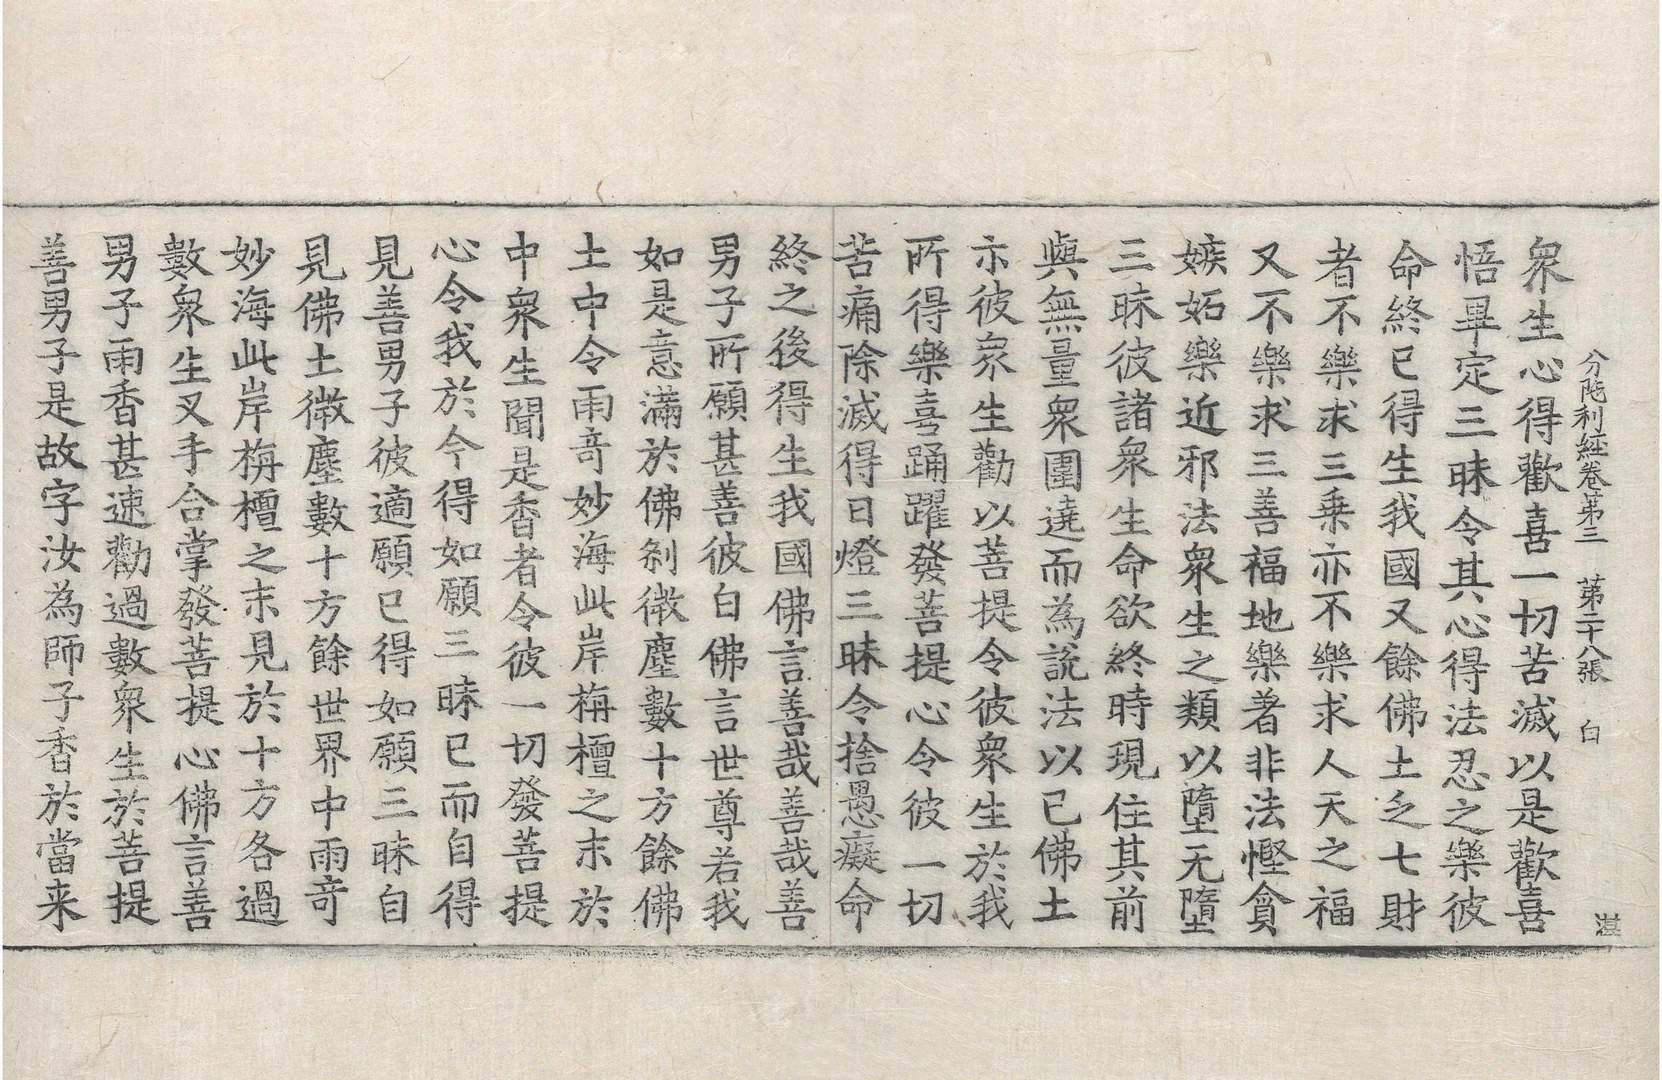 分陁利經卷第三　第二十八張　白　湛
衆生心得歡喜一切苦滅以是歡喜
悟畢定三昧令其心得法忍之樂彼
命終已得生我國又餘佛土乏七財
者不樂求三乗亦不樂求人天之福
又不樂求三善福地樂著非法慳貪
嫉妬樂近邪法衆生之類以墮无墮
三昧彼諸衆生命欲終時現住其前
與無量衆圍遶而為說法以已佛土
示彼衆生勸以菩提令彼衆生於我
所得樂喜踊躍發菩提心令彼一切
苦痛除滅得日燈三昧令捨愚癡命
終之後得生我國佛言善哉善哉善
男子所願甚善彼白佛言世尊若我
如是意滿於佛剎微塵數十方餘佛
土中令雨奇妙海此岸栴檀之末於
中衆生聞是香者令彼一切發菩提
心令我於今得如願三昧已而自得
見善男子彼適願已得如願三昧自
見佛土微塵數十方餘世界中雨奇
妙海此岸栴檀之末見於十方各過
數衆生叉手合掌發菩提心佛言善
男子雨香甚速勸過數衆生於菩提
善男子是故字汝為師子香於當来